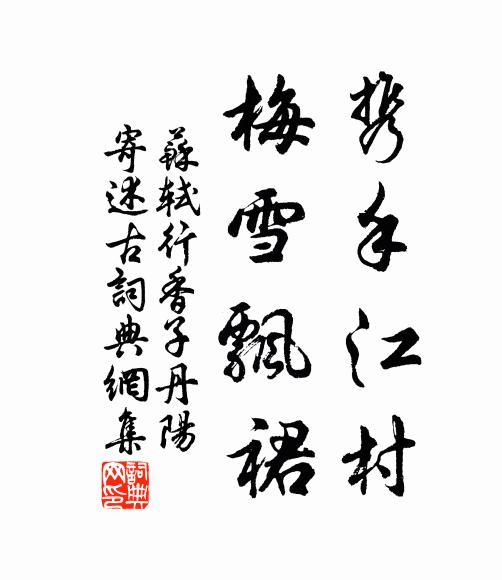 携手江村
梅雪飄裙
蘇軾行香子丹陽
寄述古詞典網集
詞典网印